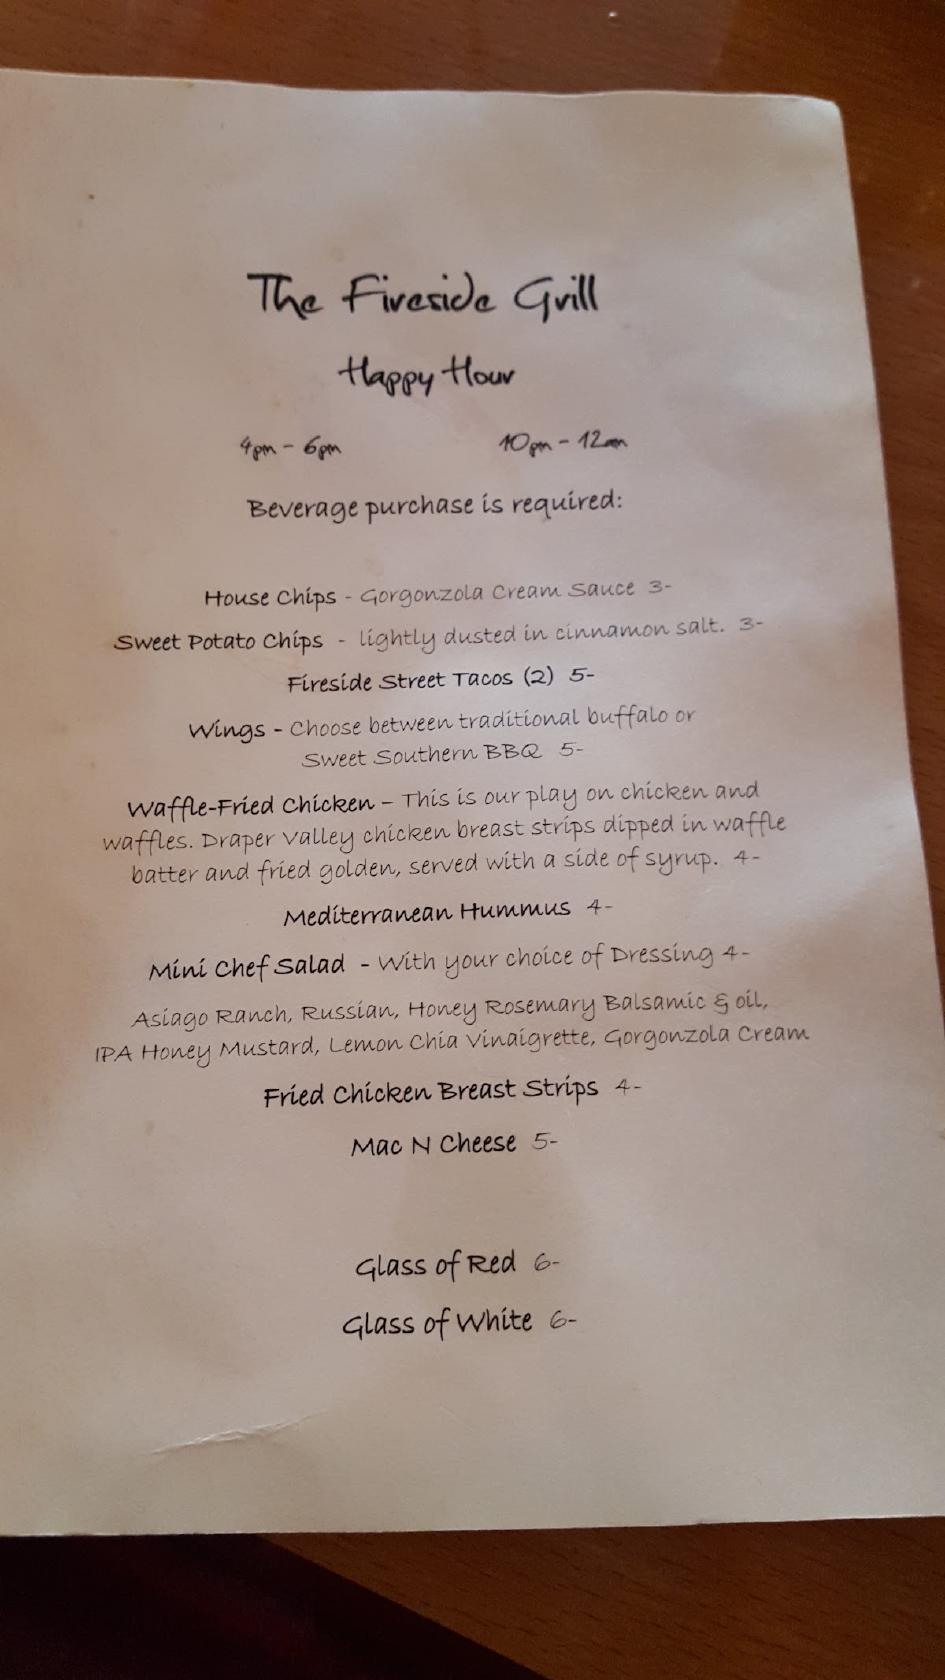 The Fireside Grill
Happy Hour
4pm - 6pm 10pm - 12am
Beverage purchase is required:
House Chips - Gorgonzola Cream Sauce 3-
Sweet Potato Chips - lightly dusted in cinnamon salt. 3-
Fireside Street Tacos (2) 5-
Wings - Choose between traditional buffalo or
Sweet Southern BBQ 5-
Waffle-Fried Chicken – This is our play on chicken and
waffles. Draper Valley chicken breast strips dipped in waffle
batter and fried golden, served with a side of syrup. 4-
Mediterranean Hummus 4-
Mini Chef Salad - With your choice of Dressing 4-
Asiago Ranch, Russian, Honey Rosemary Balsamic & oil,
IPA Honey Mustard, Lemon Chia Vinaigrette, Gorgonzola Cream
Fried Chicken Breast Strips 4-
Mac N Cheese 5-
Glass of Red 6-
Glass of White 6-